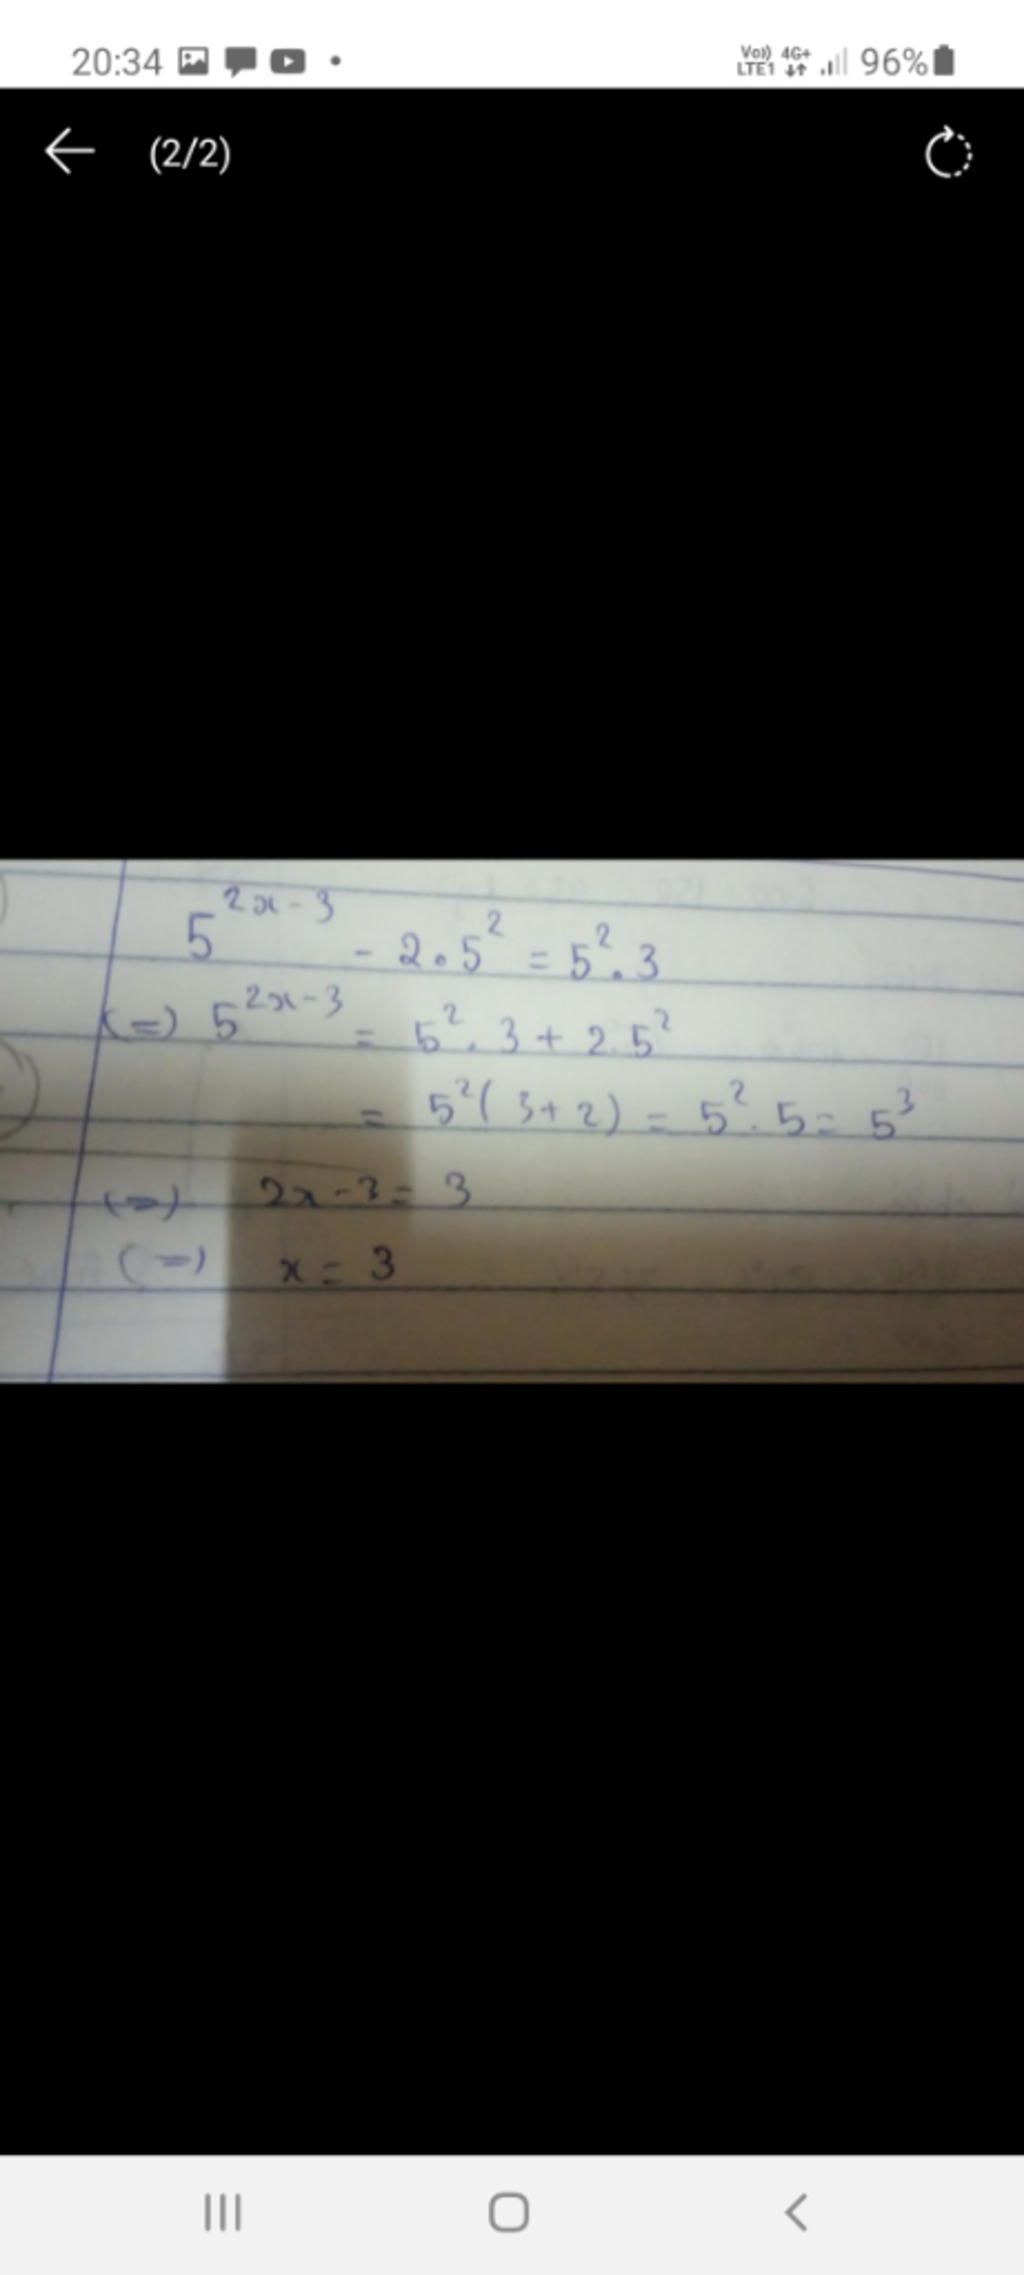 20:34
Vo)) 4G+
LTE1
96%
(2/2)
5^{2x-3} - 2.5^2 = 5^2.3
(=) 5^{2x-3} = 5^2.3 + 2.5^2
= 5^2(3+2) = 5^2.5 = 5^3
(=) 2x-3 = 3
(=) x = 3